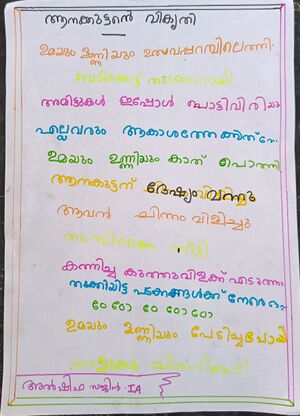 ആനക്കുട്ടന്റെ വികൃതി
ഉമയും ഉണ്ണിയും ഉത്സവപ്പറമ്പിലെത്തി
വെടിക്കെട്ട് തുടങ്ങാറായി
അമിട്ടുകൾ ഇപ്പോൾ പൊട്ടിവിരിയും
എല്ലാവരും ആകാശത്തേക്ക്
ഉമയും ഉണ്ണിയും കാത് പൊത്തി
ആനകുട്ടന് ദേഷ്യം വന്നു
അവൻ ചിന്നം വിളിച്ചു
തുമ്പിക്കൈ നീട്ടി
കത്തിച്ച കുത്തുവിളക്ക് എടുത്തു
തൂക്കിയിട്ട പടക്കങ്ങൾക്ക് നേരെ
ഠേ ഠോ ഠേ ഠോ ഠോ
ഉമയും ഉണ്ണിയും പേടിച്ചുപോയി
അൻഷിഫ സജിൻ 1A